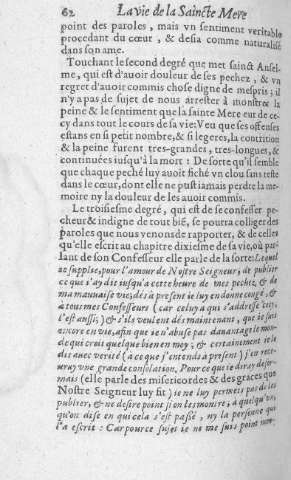 62 La vie de la Saincte Mere
point des paroles, mais vn sentiment veritable
procedant du cœur, & desia comme naturalisé
dans son ame.
Touchant le second degré que met sainct Ansel-
me, qui est d'auoir douleur de ses pechez, & vn
regret d'auoir commis chose digne de mespris; il
n'y a pas de sujet de nous arrester à monstrer la
peine & le sentiment que la sainte Mere eur de ce-
cy dans tout le cours de sa vie: Veu que ses offenses
estans en si petit nombre, & si legeres, la contrition
& la peine furent tres-grandes, tres-longues, &
continuées iusqu'à la mort: De sorte qu'il semble
que chaque peché luy auoit fiché vn clou sans reste
dans le cœur, dont elle ne pust iamais perdre la me-
moire ny la douleur de les auoir commis.
Le troisiesme degré, qui est de se confesser pe-
cheur & indigne de tout bié, se pourra colliger des
paroles que nous venons de rapporter, & de celles
qu'elle escrit au chapitre dixiesme de sa vie, où par-
lant de son Confesseur elle parle de la sorte: Lequel
ie supplie, pour l'amour de Nostre Seigneur, de publier
ce que i'ay dit iusqu'a cette heure de mes pechez, & de
ma mauuaise vie, dés à present ie luy en donne congé, &
à tous mes Confesseurs (car celuy à qui s'addresse
l'est aussi,) & s'ils veulent dés maintenant, que ie suis
encore en vie, afin que ie n'abuse pas dauantage le mon-
de qui croit quelque bien en moy; & certainement ie le
dis auec verité (à ce que i'entends à present) i'en rece-
uray vne grande consolation. Pour ce que ie diray desor-
mais (elle parle des misericordes & des graces que
Nostre Seigneur luy fit) ie ne luy permets pas de les
publier, & ne desire point, si on les monstre, à quelqu'vn,
qu'on dise en qui cela s'est passé, ny la personne qui
l'a escrit: Car pour ce sujet ie ne me suis point nom-